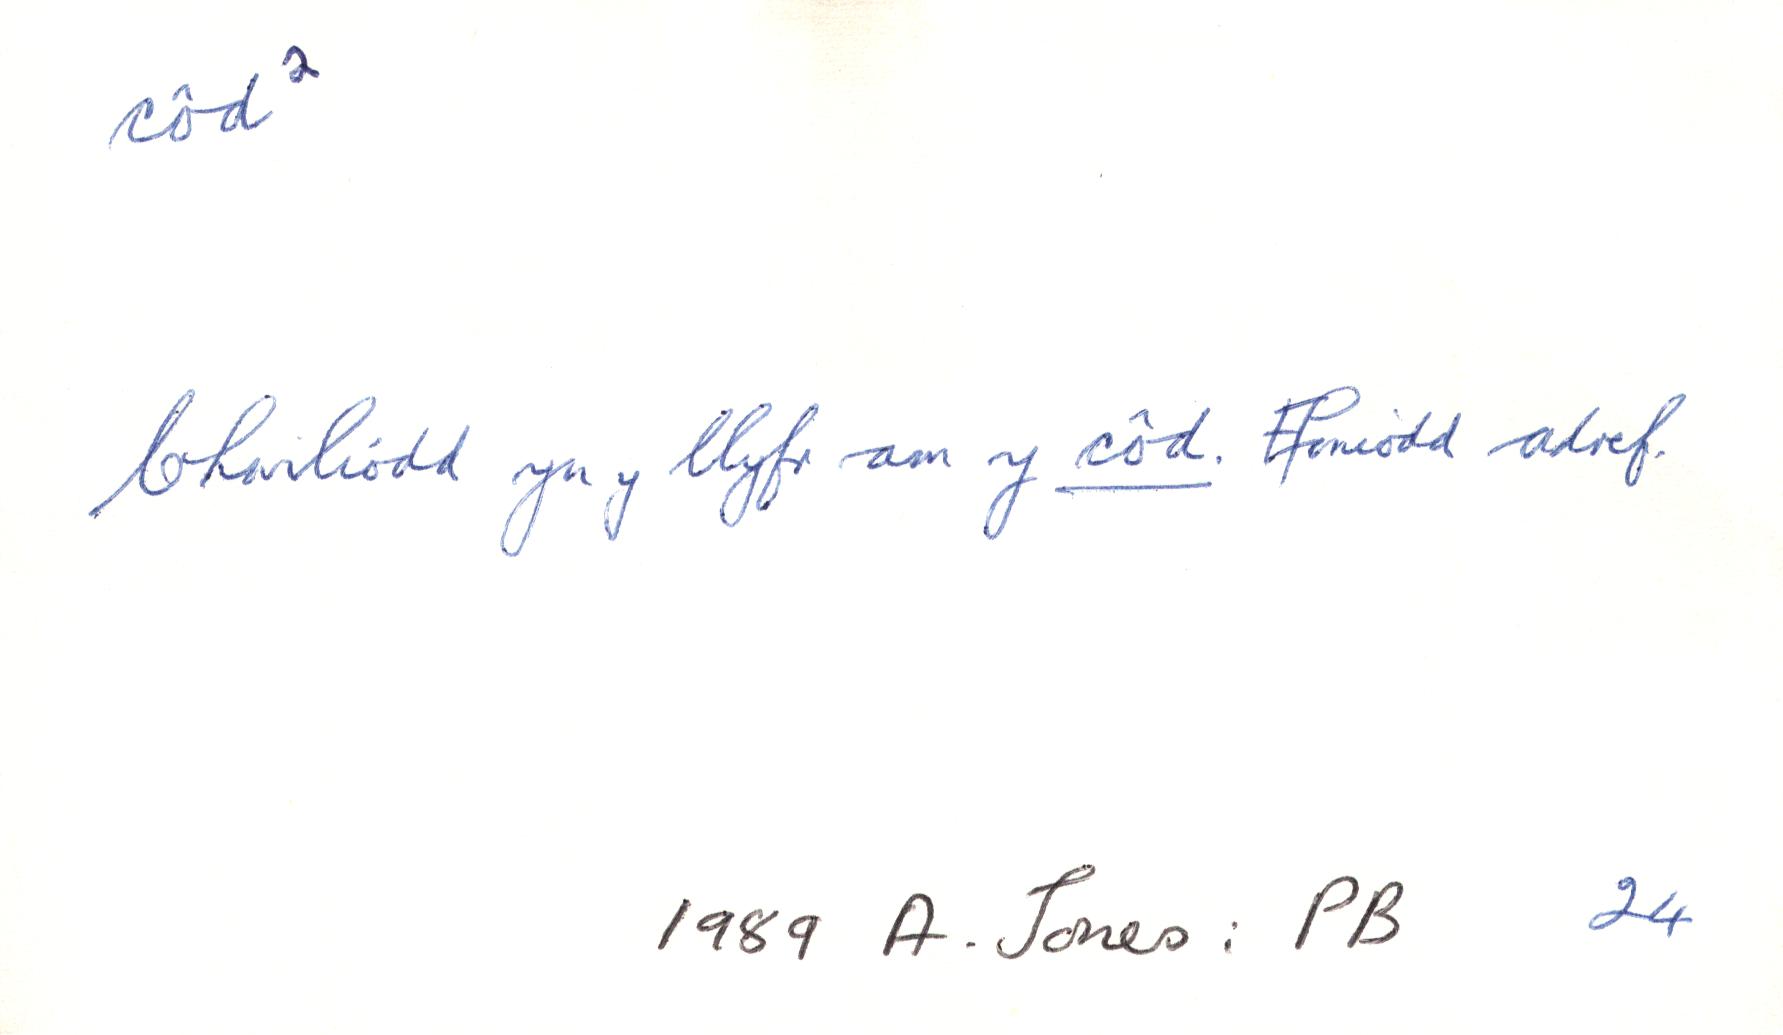 côd²
Chwiliodd yn y llyfr am y côd. Ffoniodd adref.
1989 A. Jones: PB 24